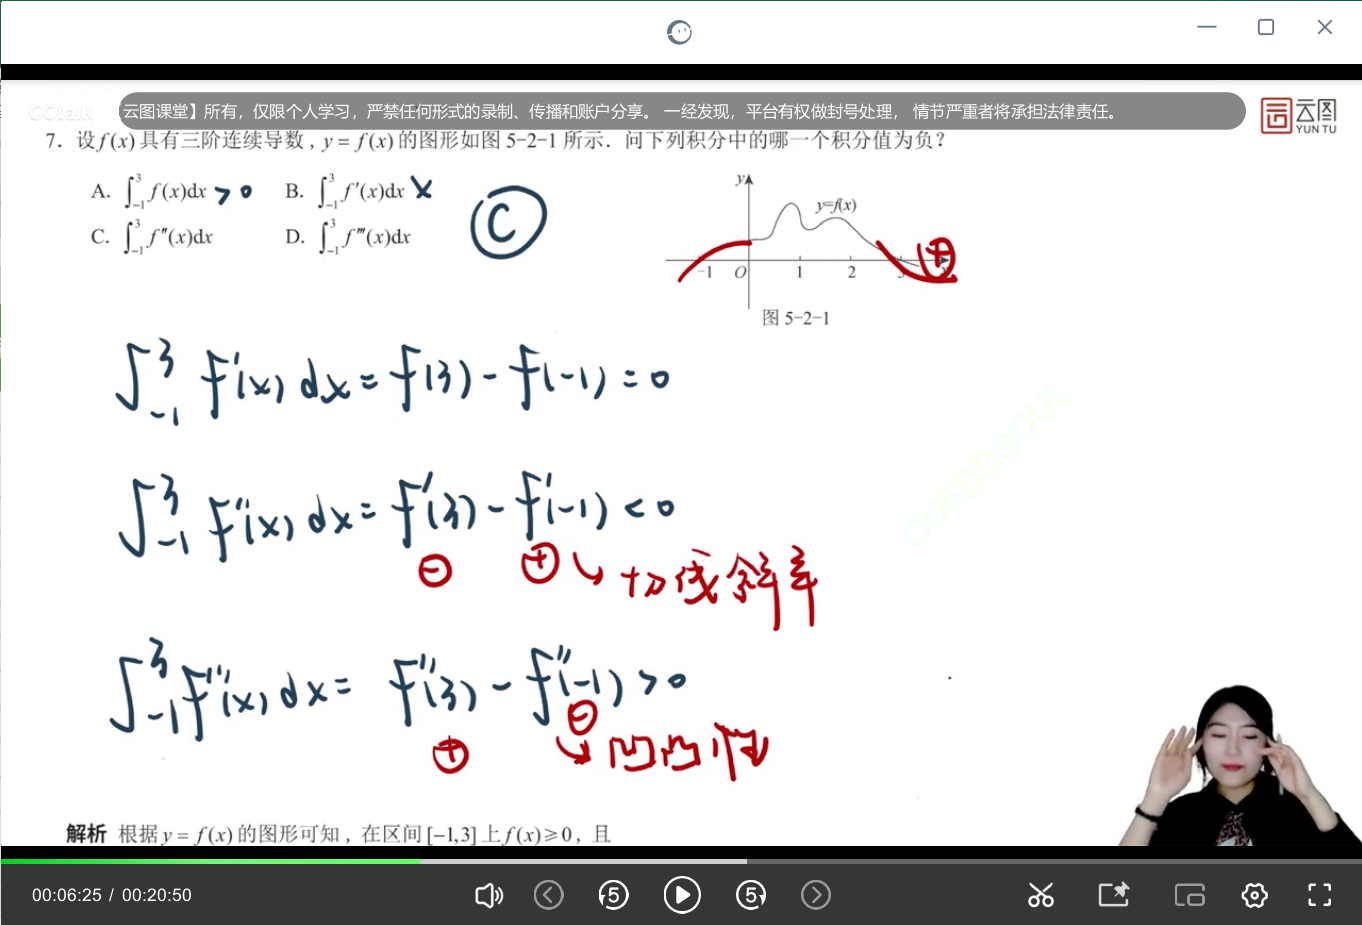 CCtalk
【云图课堂】所有，仅限个人学习，严禁任何形式的录制、传播和账户分享。 一经发现，平台有权做封号处理， 情节严重者将承担法律责任。
云图
YUN TU
7. 设 f(x) 具有三阶连续导数, y = f(x) 的图形如图 5-2-1 所示. 问下列积分中的哪一个积分值为负?
A. ∫₋₁³ f(x)dx > 0 B. ∫₋₁³ f′(x)dx ×
C. ∫₋₁³ f″(x)dx D. ∫₋₁³ f‴(x)dx
C
y
y=f(x)
+
-1 O 1 2 3 x
图 5-2-1
∫₋₁³ f′(x) dx = f(3) - f(-1) = 0
∫₋₁³ f″(x) dx = f′(3) - f′(-1) < 0
⊖ ⊕ ↘ 切线斜率
∫₋₁³ f‴(x) dx = f″(3) - f″(-1) > 0
⊕ ⊖ ↘ 凹凸性
CUEDDSOUL
解析 根据 y = f(x) 的图形可知, 在区间 [-1,3] 上 f(x) ≥ 0, 且
00:06:25 / 00:20:50
5
5